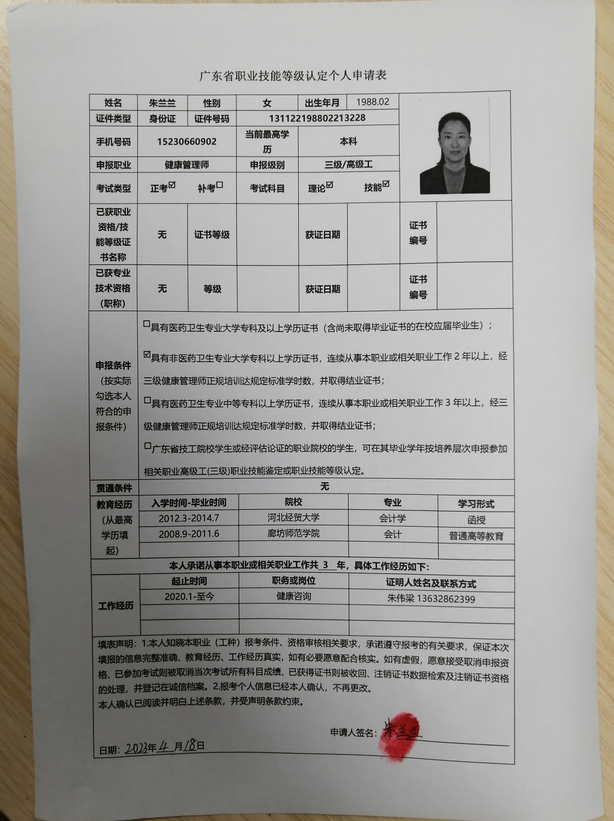 广东省职业技能等级认定个人申请表
姓名 朱兰兰 性别 女 出生年月 1988.02
证件类型 身份证 证件号码 131122198802213228
手机号码 15230660902 当前最高学历 本科
申报职业 健康管理师 申报级别 三级/高级工
考试类型 正考☑ 补考☐ 考试科目 理论☑ 技能☑
已获职业资格/技能等级证书名称 无 证书等级 获证日期 证书编号
已获专业技术资格（职称） 无 等级 获证日期 证书编号
申报条件（按实际勾选本人符合的申报条件）
☐具有医药卫生专业大学专科及以上学历证书（含尚未取得毕业证书的在校应届毕业生）；
☑具有非医药卫生专业大学专科以上学历证书，连续从事本职业或相关职业工作 2 年以上，经
三级健康管理师正规培训达规定标准学时数，并取得结业证书；
☐具有医药卫生专业中等专科以上学历证书，连续从事本职业或相关职业工作 3 年以上，经三
级健康管理师正规培训达规定标准学时数，并取得结业证书；
☐广东省技工院校学生或经评估论证的职业院校的学生，可在其毕业学年按培养层次申报参加
相关职业高级工(三级)职业技能鉴定或职业技能等级认定。
贯通条件 无
教育经历（从最高学历填起） 入学时间-毕业时间 院校 专业 学习形式
2012.3-2014.7 河北经贸大学 会计学 函授
2008.9-2011.6 廊坊师范学院 会计 普通高等教育
本人承诺从事本职业或相关职业工作共 3 年，具体工作经历如下：
工作经历 起止时间 职务或岗位 证明人姓名及联系方式
2020.1-至今 健康咨询 朱伟梁 13632862399
填表声明：1.本人知晓本职业（工种）报考条件、资格审核相关要求，承诺遵守报考的有关要求，保证本次
填报的信息完整准确、教育经历、工作经历真实，如有必要愿意配合核实。如有虚假，愿意接受取消申报资
格、已参加考试则被取消当次考试所有科目成绩、已获得证书则被收回、注销证书数据检索及注销证书资格
的处理，并登记在诚信档案。2.报考个人信息已经本人确认，不再更改。
本人确认已阅读并明白上述条款，并受声明条款约束。
申请人签名：朱兰兰
日期：2023年4月18日